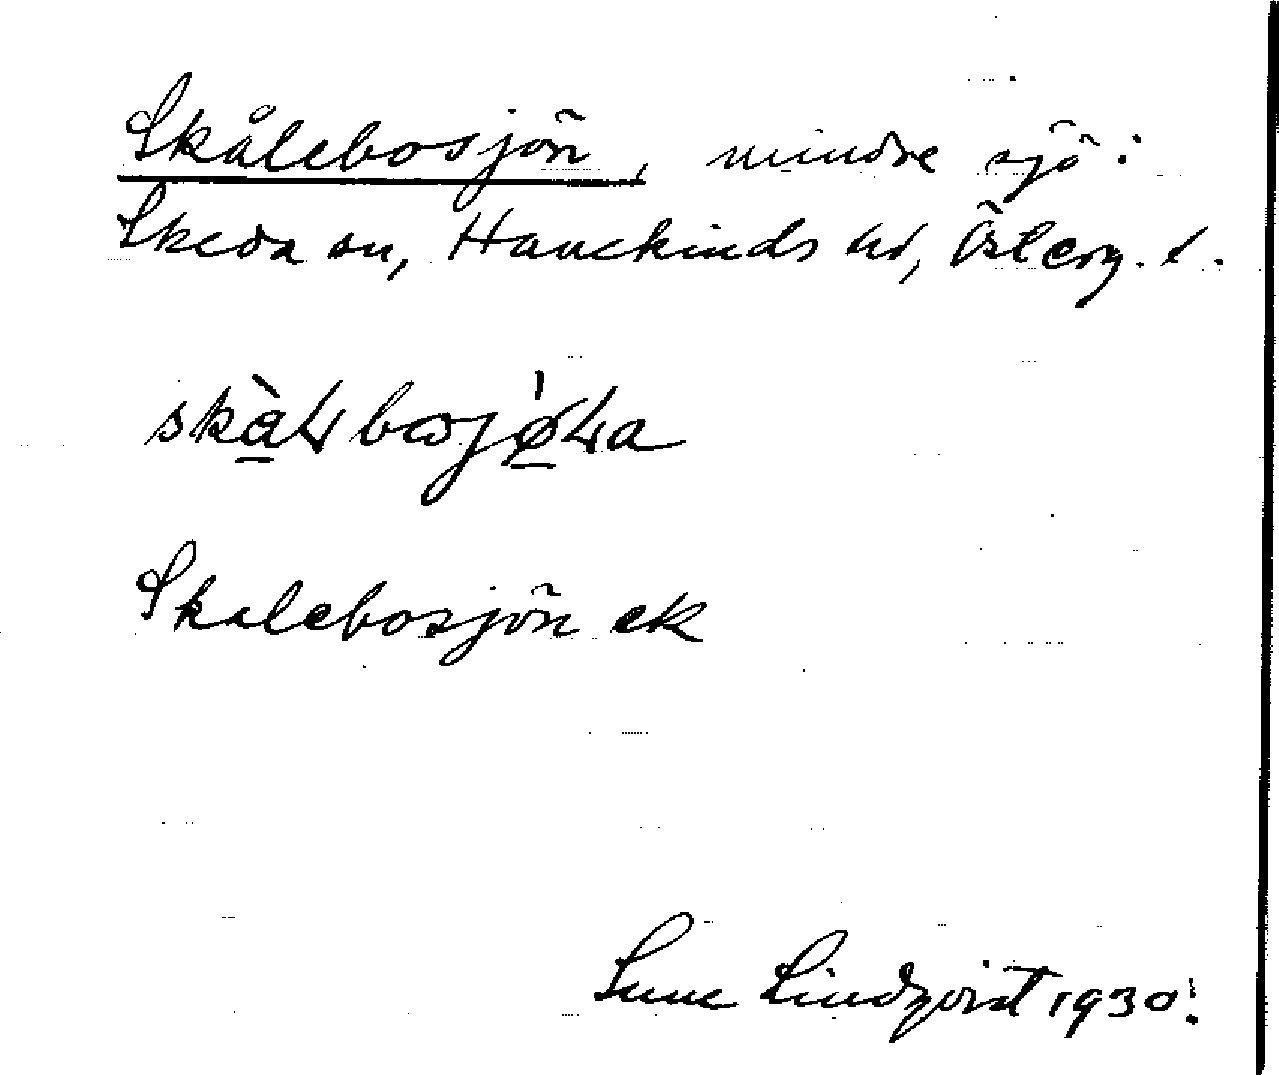 Skålebosjön, mindre sjö:
Skeda sn, Hanekinds hd, Österg. l.
Skalebosjön ek
Sune Lindqvist 1930